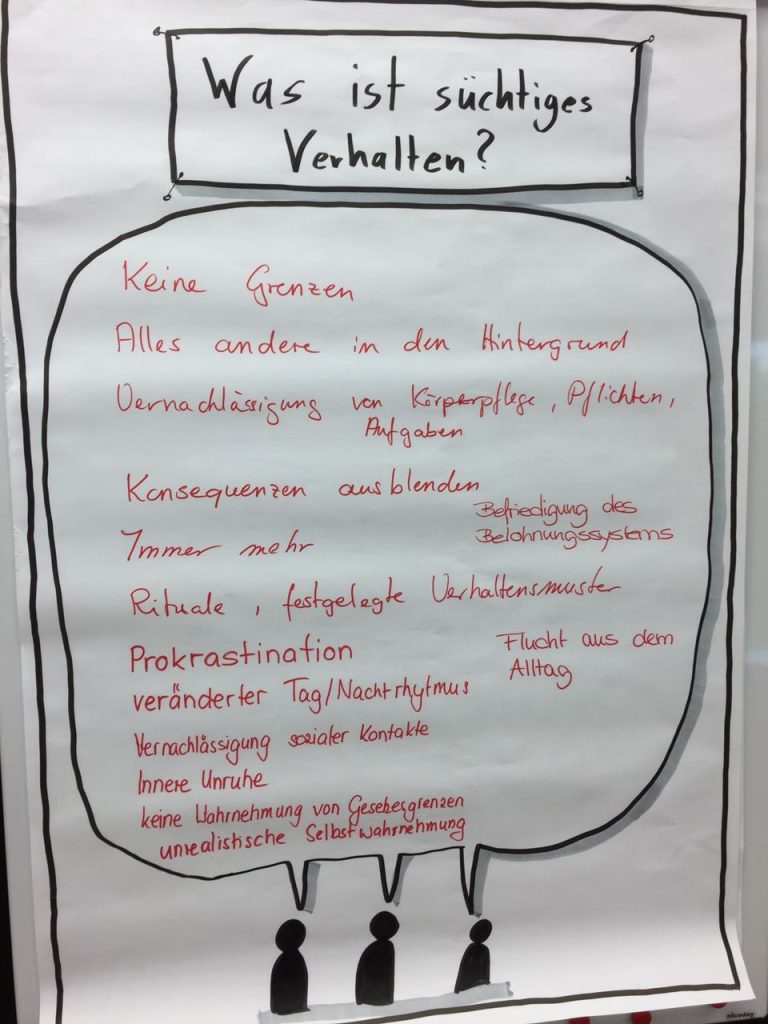 Was ist süchtiges
Verhalten?
Keine Grenzen
Alles andere in den Hintergrund
Vernachlässigung von Körperpflege, Pflichten,
Aufgaben
Konsequenzen ausblenden
Befriedigung des
Belohnungssystems
Immer mehr
Rituale, festgelegte Verhaltensmuster
Prokrastination
Flucht aus dem
Alltag
veränderter Tag/Nachtrhytmus
Vernachlässigung sozialer Kontakte
Innere Unruhe
keine Wahrnehmung von Gesetzesgrenzen
unrealistische Selbstwahrnehmung
nicoday